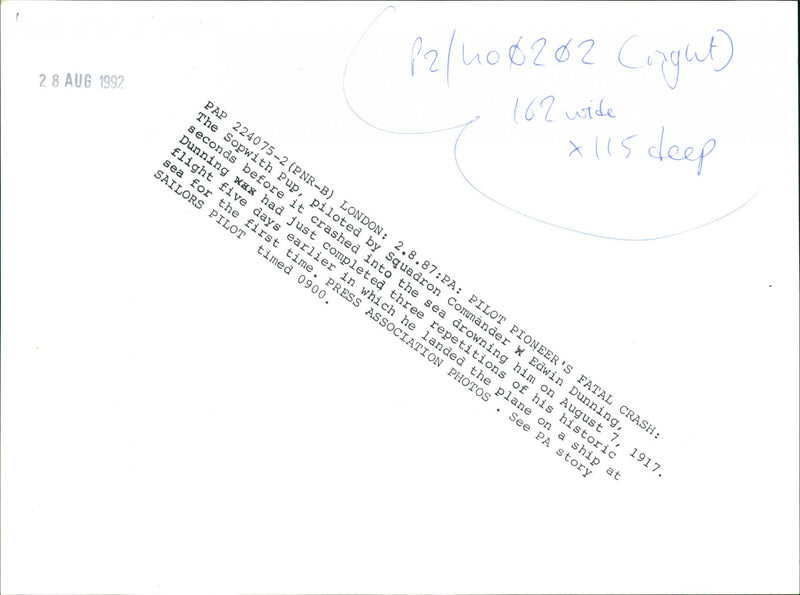 28 AUG 1992
P2/NO0202 (right)
162 wide
x 115 deep
PAP 224075-2(PNR-B) LONDON: 2.8.87:PA: PILOT PIONEER'S FATAL CRASH:
The Sopwith Pup, piloted by Squadron Commander Edwin Dunning,
seconds before it crashed into the sea drowning him on August 7, 1917.
Dunning had just completed three repetitions of his historic
flight five days earlier in which he landed the plane on a ship at
sea for the first time. PRESS ASSOCIATION PHOTOS . See PA story
SAILORS PILOT timed 0900.